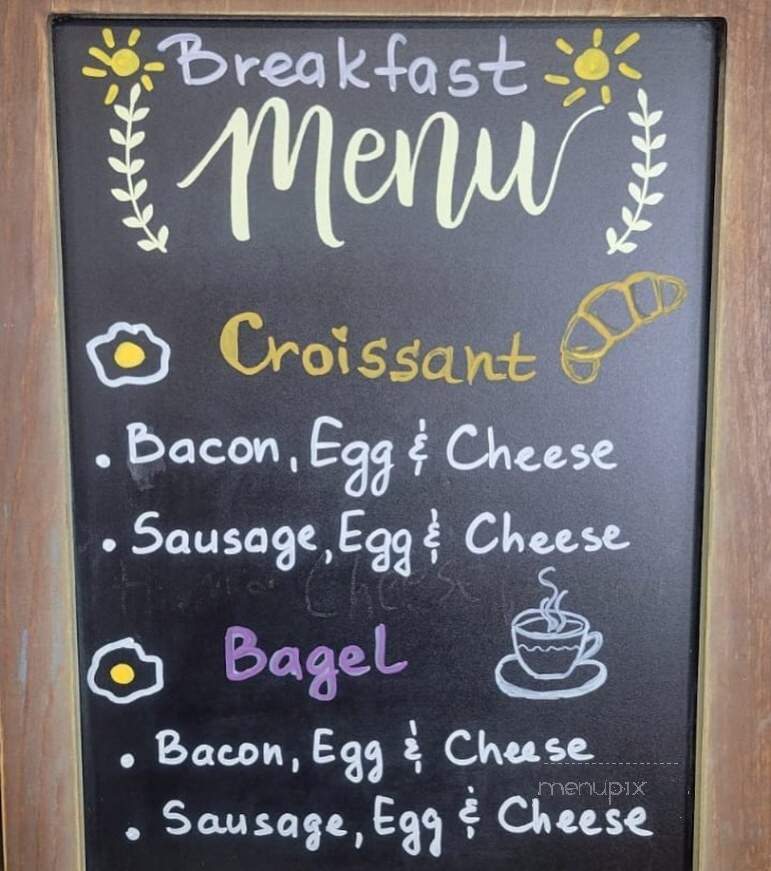 Breakfast
Menu
Croissant
. Bacon, Egg & Cheese
. Sausage, Egg & Cheese
Cheese
Bagel
. Bacon, Egg & Cheese
menupix
. Sausage, Egg & Cheese